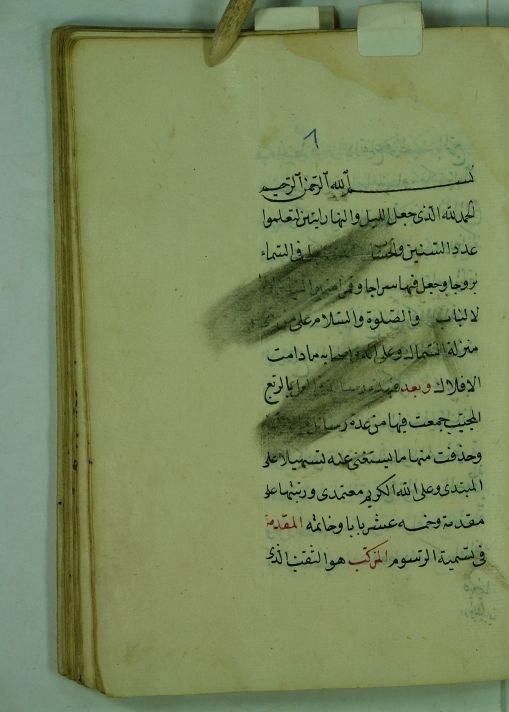 ٦
بسم الله الرحمن الرحيم
الحمد لله الذى جعل الليل والنهار ايتين لتعلموا
عدد السنين والحساب فى السماء
بروجا وجعل فيها سراجا وقمرا منيرا
لالباب والصلوة والسلام على
منزلة السماك وعلى اله واصحابه مادامت
الافلاك وبعد فهذه رسالة بالربع
المجيب جمعت فيها من عدة رسائل
وحذفت منها ما يستغنى عنه تسهيلا على
المبتدى وعلى الله الكريم معتمدى ورتبتها على
مقدمة وخمسه عشر بابا وخاتمه المقدمة
فى تسمية الرسوم المركب هو الثقب الذى